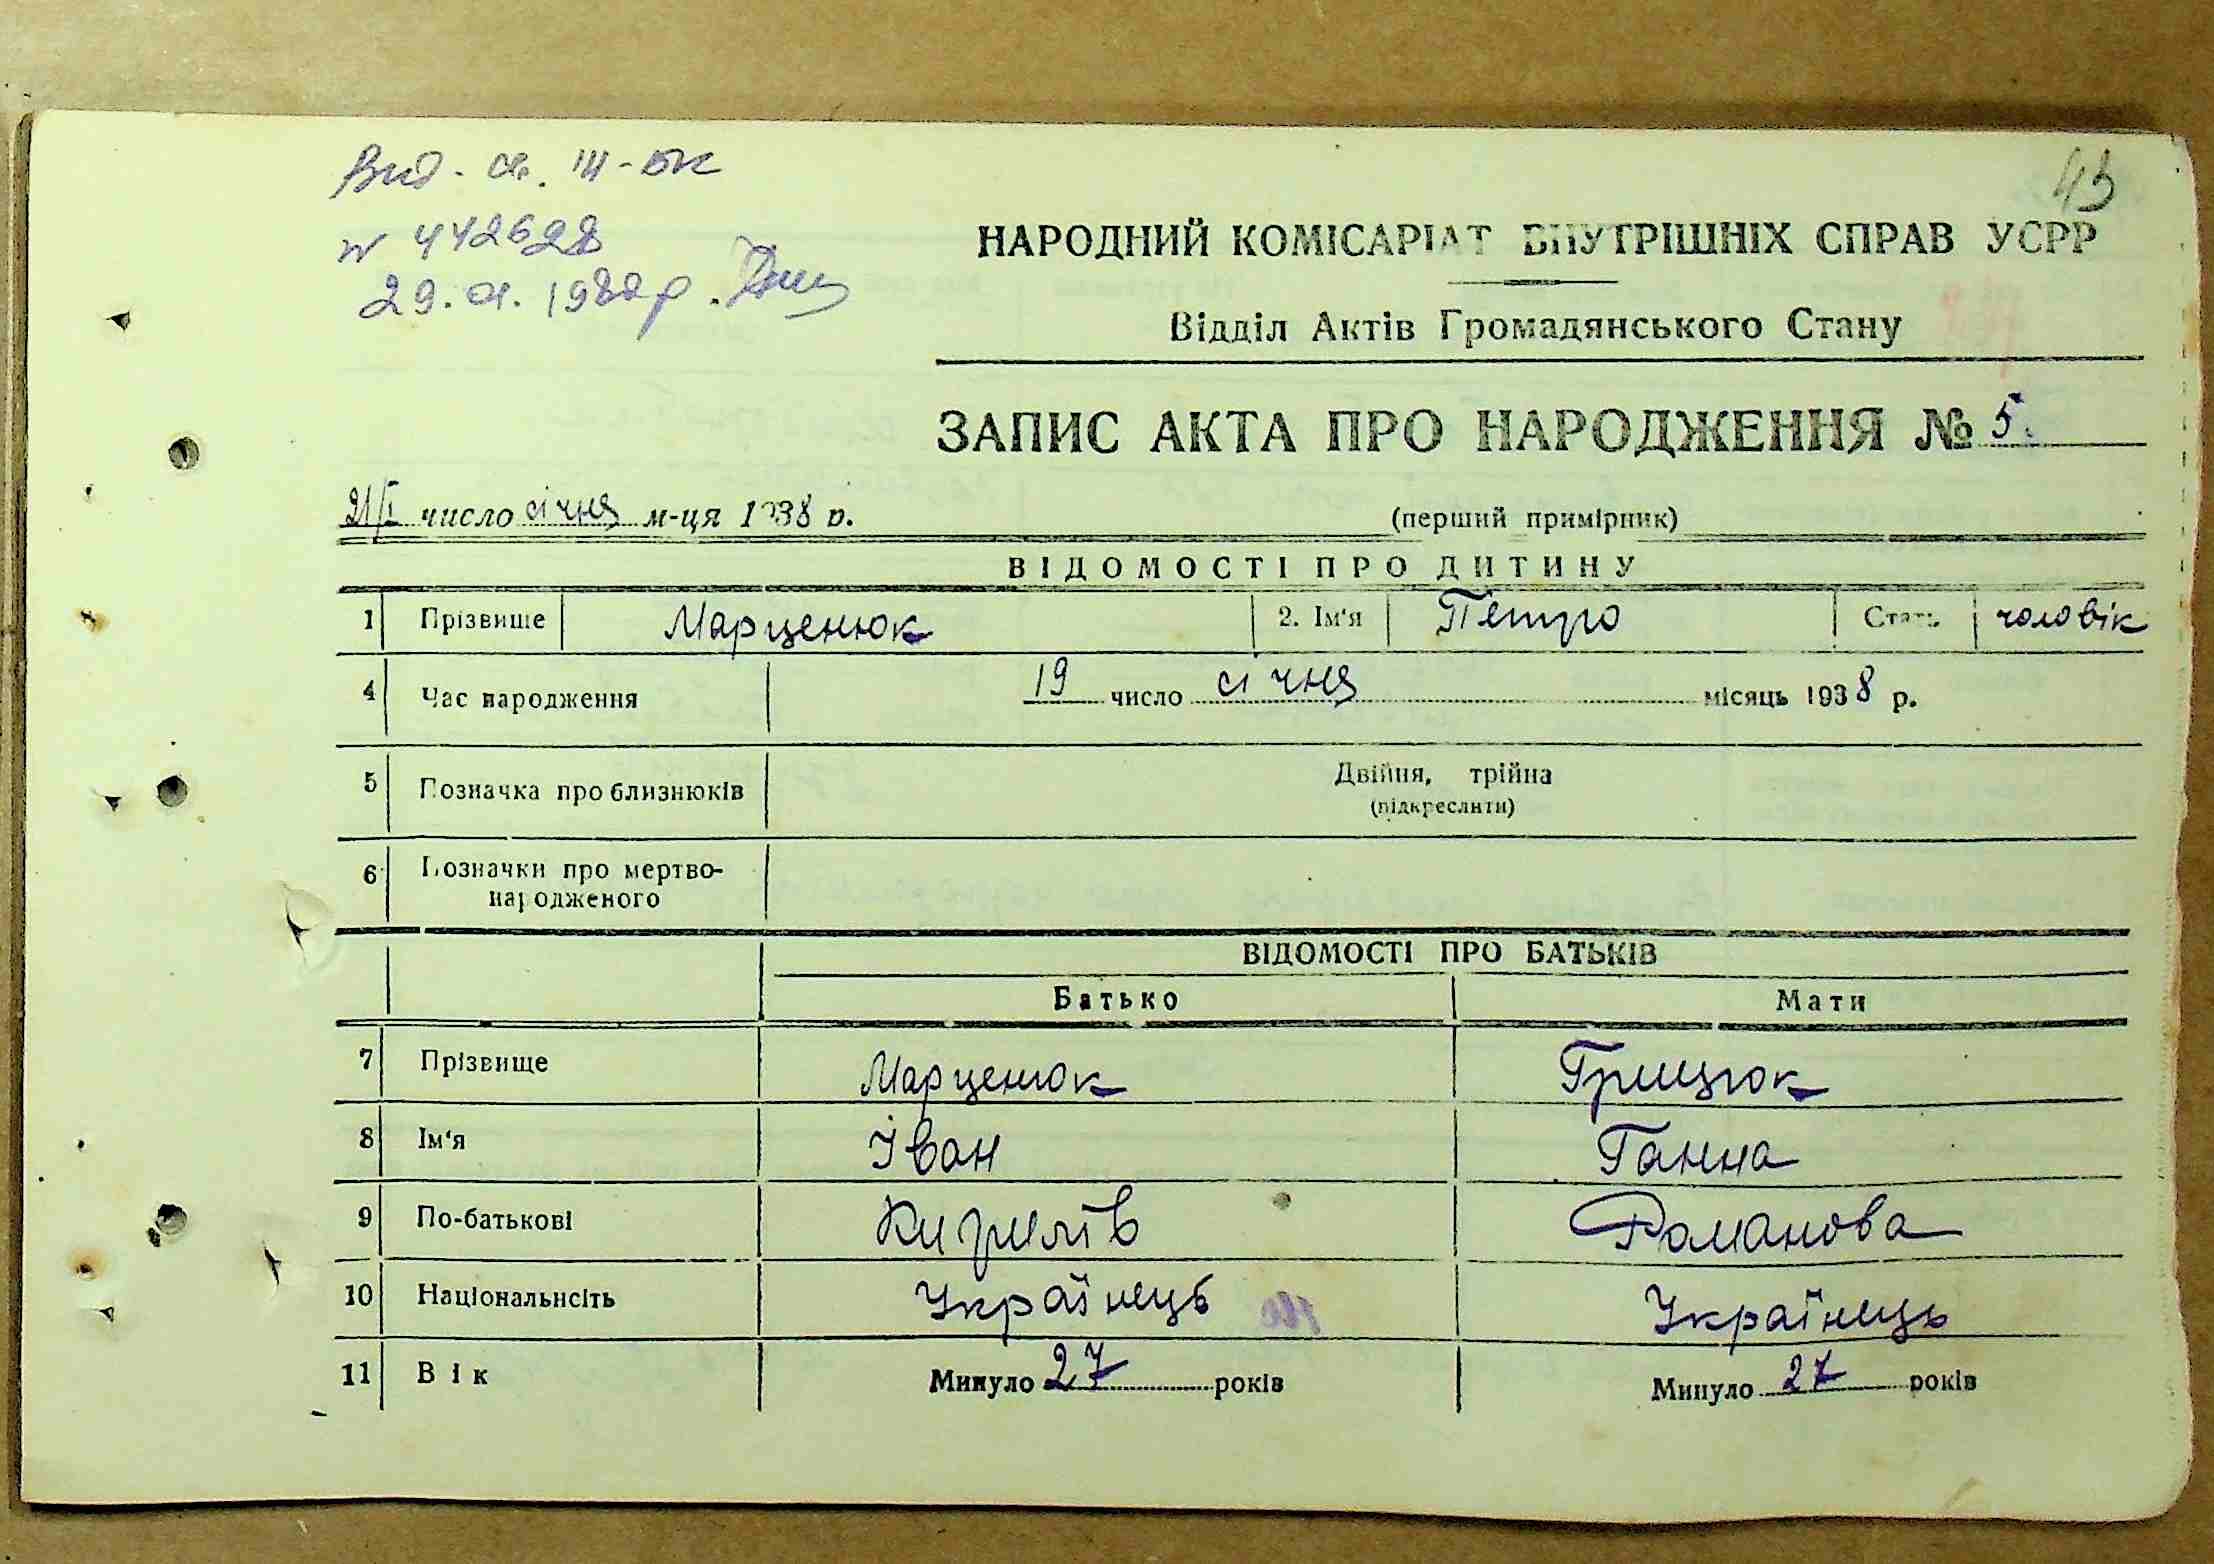 43
Вид. св. III-БК
N 442628
29. 01. 1980р.
НАРОДНИЙ КОМІСАРІАТ ВНУТРІШНІХ СПРАВ УСРР
Відділ Актів Громадянського Стану
ЗАПИС АКТА ПРО НАРОДЖЕННЯ № 5.
21/I число січня м-ця 1938 р. (перший примірник)
ВІДОМОСТІ ПРО ДИТИНУ
1 Прізвище Марценюк 2. Ім'я Петро Стать чоловік
4 Час народження 19 число січня місяць 1938 р.
5 Позначка про близнюків Двійня, трійна
(підкреслити)
6 Позначки про мертво-
народженого
ВІДОМОСТІ ПРО БАТЬКІВ
Батько Мати
7 Прізвище Марценюк Грицюк
8 Ім'я Іван Ганна
9 По-батькові Кирилів Романова
10 Національнсіть Українець Українець
11 Вік Минуло 27 років Минуло 27 років